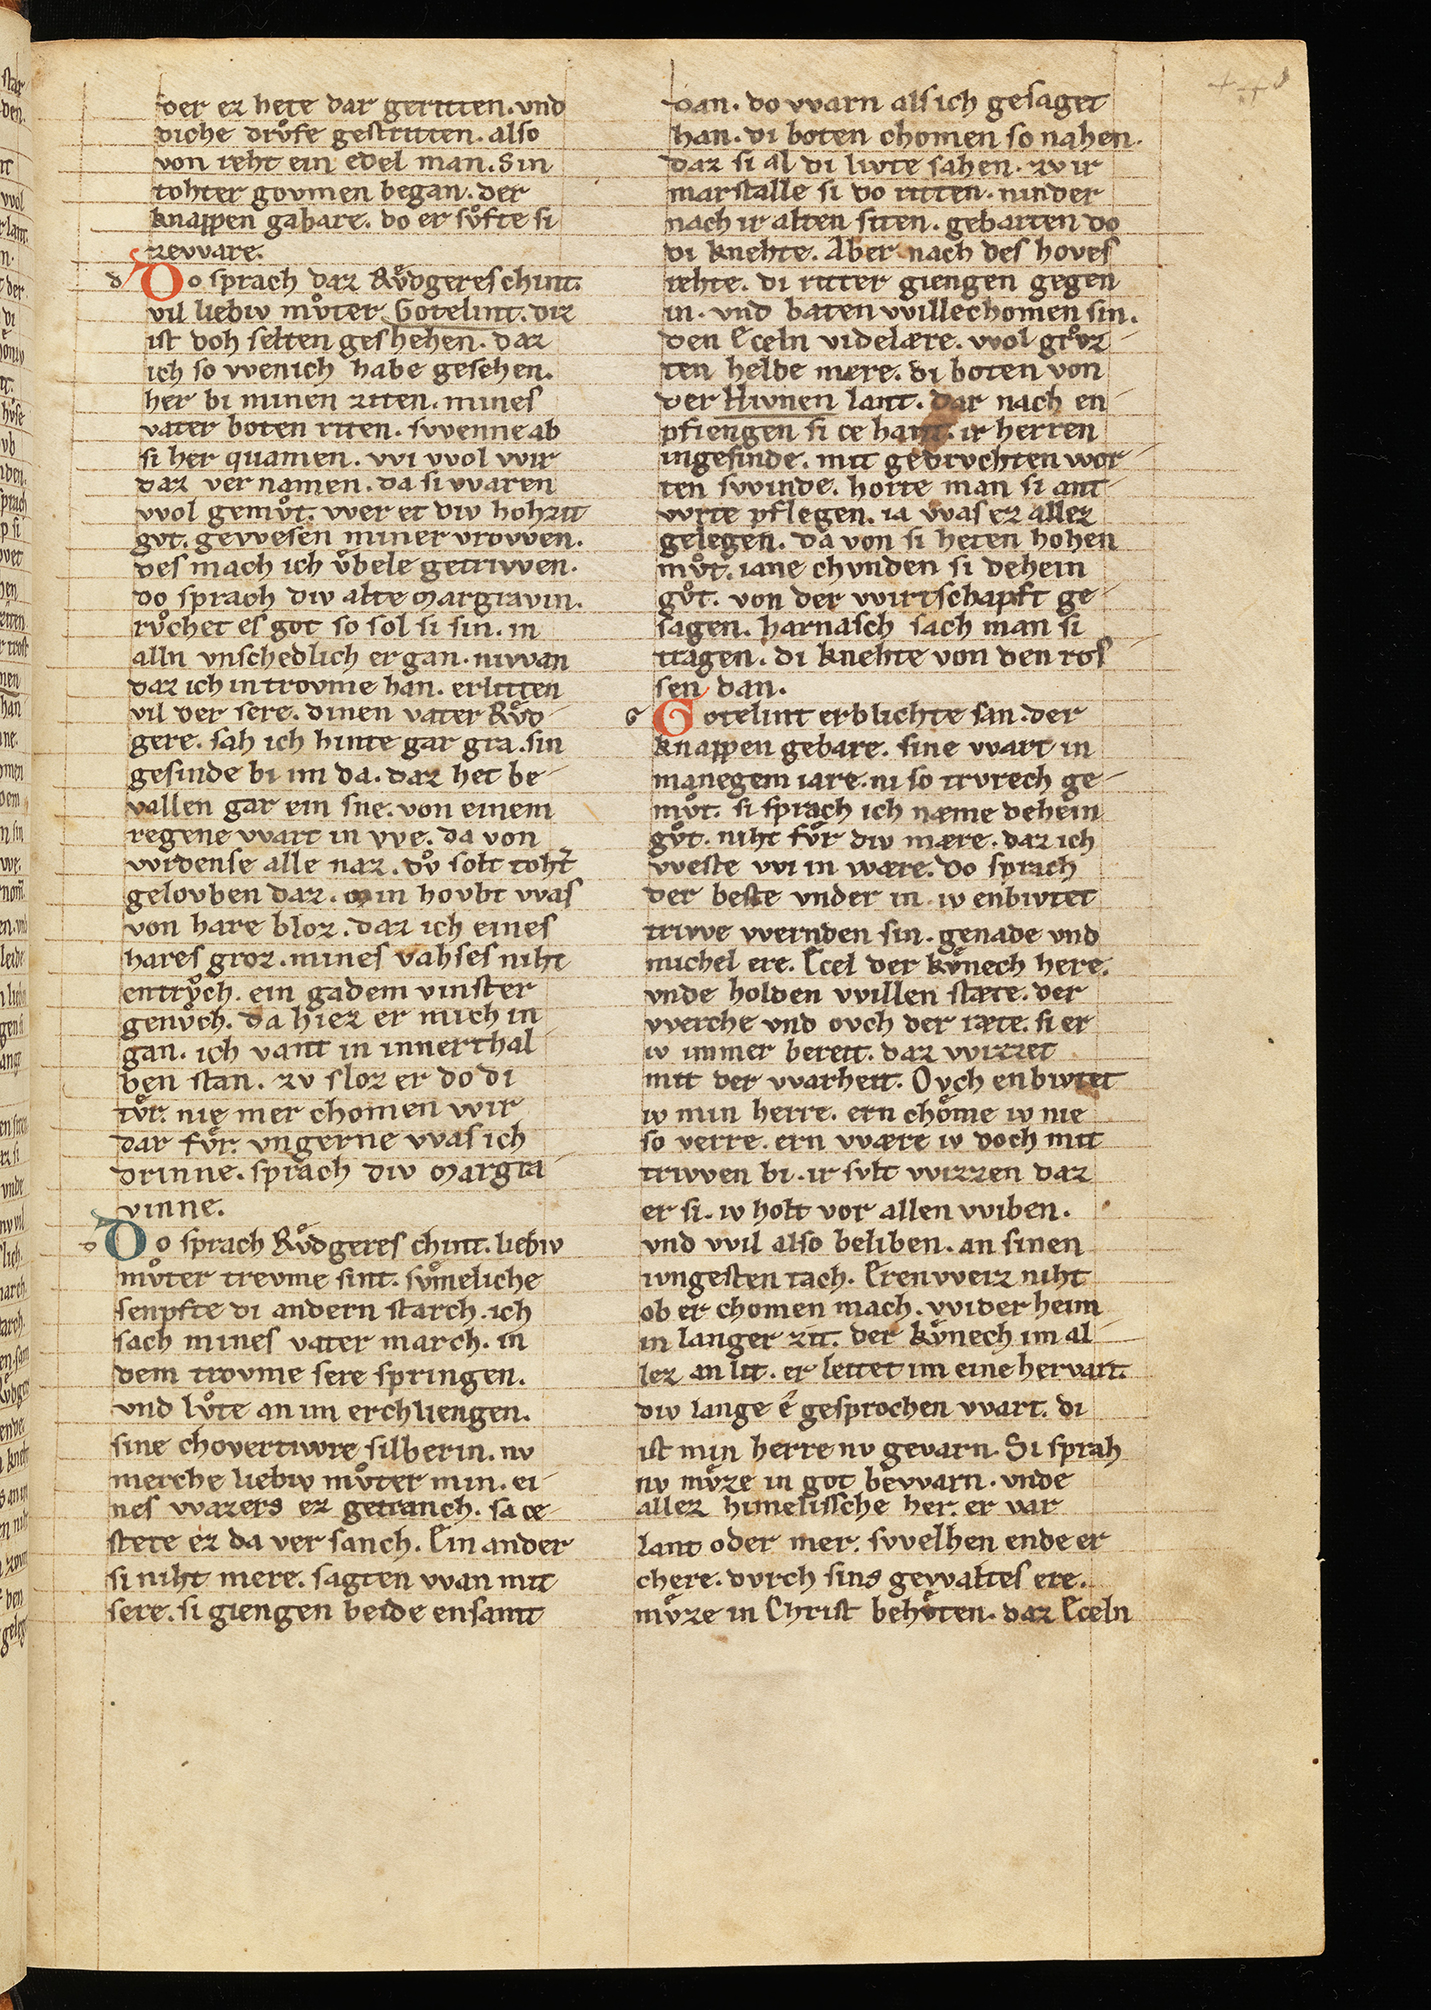 der ez hete dar geritten. vnd
diche drvͦfe gestritten. also
von reht ein edel man. Sin
tohter govmen began. der
knappen gabare. do er svͦfte si
zeware.
Do sprach daz Rvͤdgeres chint.
vil liebiv mvͦter Gotelint. diz
ist doh selten geshehen. daz
ich so wenich habe gesehen.
her bi minen ziten. mines
vater boten riten. swenne ab
si her quamen. wi wol wir
daz ver namen. da si waren
wol gemvͦt. wer et div hohzit
gvt. gewesen miner vrowen.
des mach ich vͤbele getriwen.
do sprach div alte Margravin.
rvͦchet es got so sol si sin. in
alln vnschedlich ergan. niwan
daz ich in trovme han. erlitten
vil der sere. dinen vater Rvͤd
gere. sah ich hinte gar gra. sin
gesinde bi im da. daz het be
vallen gar ein sne. von einem
regene wart in we. da von
wrdense alle naz. dvͦ solt toht
gelovben daz. min hovbt was
von hare bloz. daz ich eines
hares groz. mines vahses niht
entrvͦch. ein gadem vinster
genvͦch. da hiez er mich in
gan. ich vant in innerthal
ben stan. zv sloz er do di
tvͤr. nie mer chomen wir
dar fvͤr. vngerne was ich
drinne. sprach div Margra
vinne.
Do sprach Rvͤdgeres chint. liebiv
mvͦter trevme sint. svͤmeliche
senpfte di andern starch. ich
sach mines vater march. in
dem trovme sere springen.
vnd lvͦte an im erchliengen.
sine chovertiwre silberin. nv
merche liebiv mvͦter min. ei
nes wazers ez getranch. sa ce
stete ez da ver sanch. Ein ander
si niht mere. sagten wan mit
sere. si giengen beide ensamt
dan. do warn als ich gesaget
han. di boten chomen so nahen.
daz si al di livte sahen. zv ir
marstalle si do ritten. ninder
nach ir alten siten. gebarten do
di knehte. Aber nach des hoves
rehte. di ritter giengen gegen
in. vnd baten willechomen sin.
den Eceln videlære. wol grvͦz
ten helde mere. di boten von
der Hivnen lant. dar nach en
pfiengen si ce hant. ir herren
ingesinde. mit gedrvchten wor
ten swinde. horte man si ant
wrte pflegen. ia was ez allez
gelegen. da von si heten hohen
mvͦt. iane chvnden si dehein
gvͦt. von der wirtschapft ge
sagen. harnasch sach man si
tragen. di knehte von den ros
sen dan.
Gotelint erblichte san. der
knappen gebare. sine wart in
manegem iare. ni so trvrech ge
mvͦt. si sprach ich næme dehein
gvͦt. niht fvͤr div mære. daz ich
weste wi in wære. Do sprach
der beste vnder in. iv enbivtet
triwe wernden sin. genade vnd
michel ere. Ecel der kvͤnech here.
vnde holden willen stæte. der
werche vnd ovch der ræte. si er
iv immer bereit. daz wizzet
mit der warheit. Ovch enbivtet
iv min herre. ern chöme iv nie
so verre. ern wære iv doch mit
triwen bi. ir svlt wizzen daz
er si. iv holt vor allen wiben.
vnd wil also beliben. an sinen
ivngesten tach. Eren weiz niht
ob er chomen mach. wider heim
in langer zit. der kvͤnech im al
lez an lit. er leitet im eine hervart.
div lange e gesprochen wart. di
ist min herre nv gevarn. Si sprah
nv mvͤze in got bewarn. vnde
allez himelissche her. er var
lant oder mer. swelhen ende er
chere. dvrch sins gewaltes ere.
mvͤze in Christ behvͤten. daz Eceln